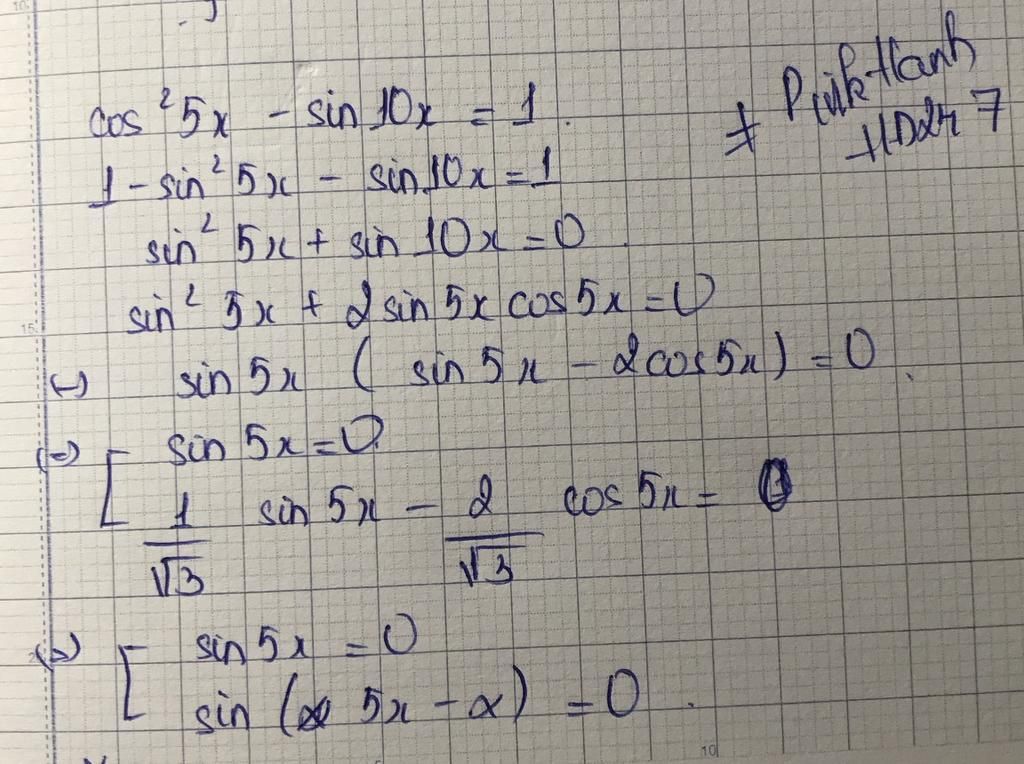 cos² 5x - sin 10x = 1.
1 - sin² 5x - sin 10x = 1
sin² 5x + sin 10x = 0
sin² 5x + 2 sin 5x cos 5x = 0
(=) sin 5x ( sin 5x - 2 cos 5x ) = 0
(=) [ sin 5x = 0
1/√3 sin 5x - 2/√3 cos 5x = 0
(=) [ sin 5x = 0
sin ( 5x - α ) = 0.
≠
7
15
10